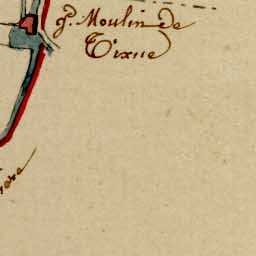 gᵈ. Moulin de
Tixue